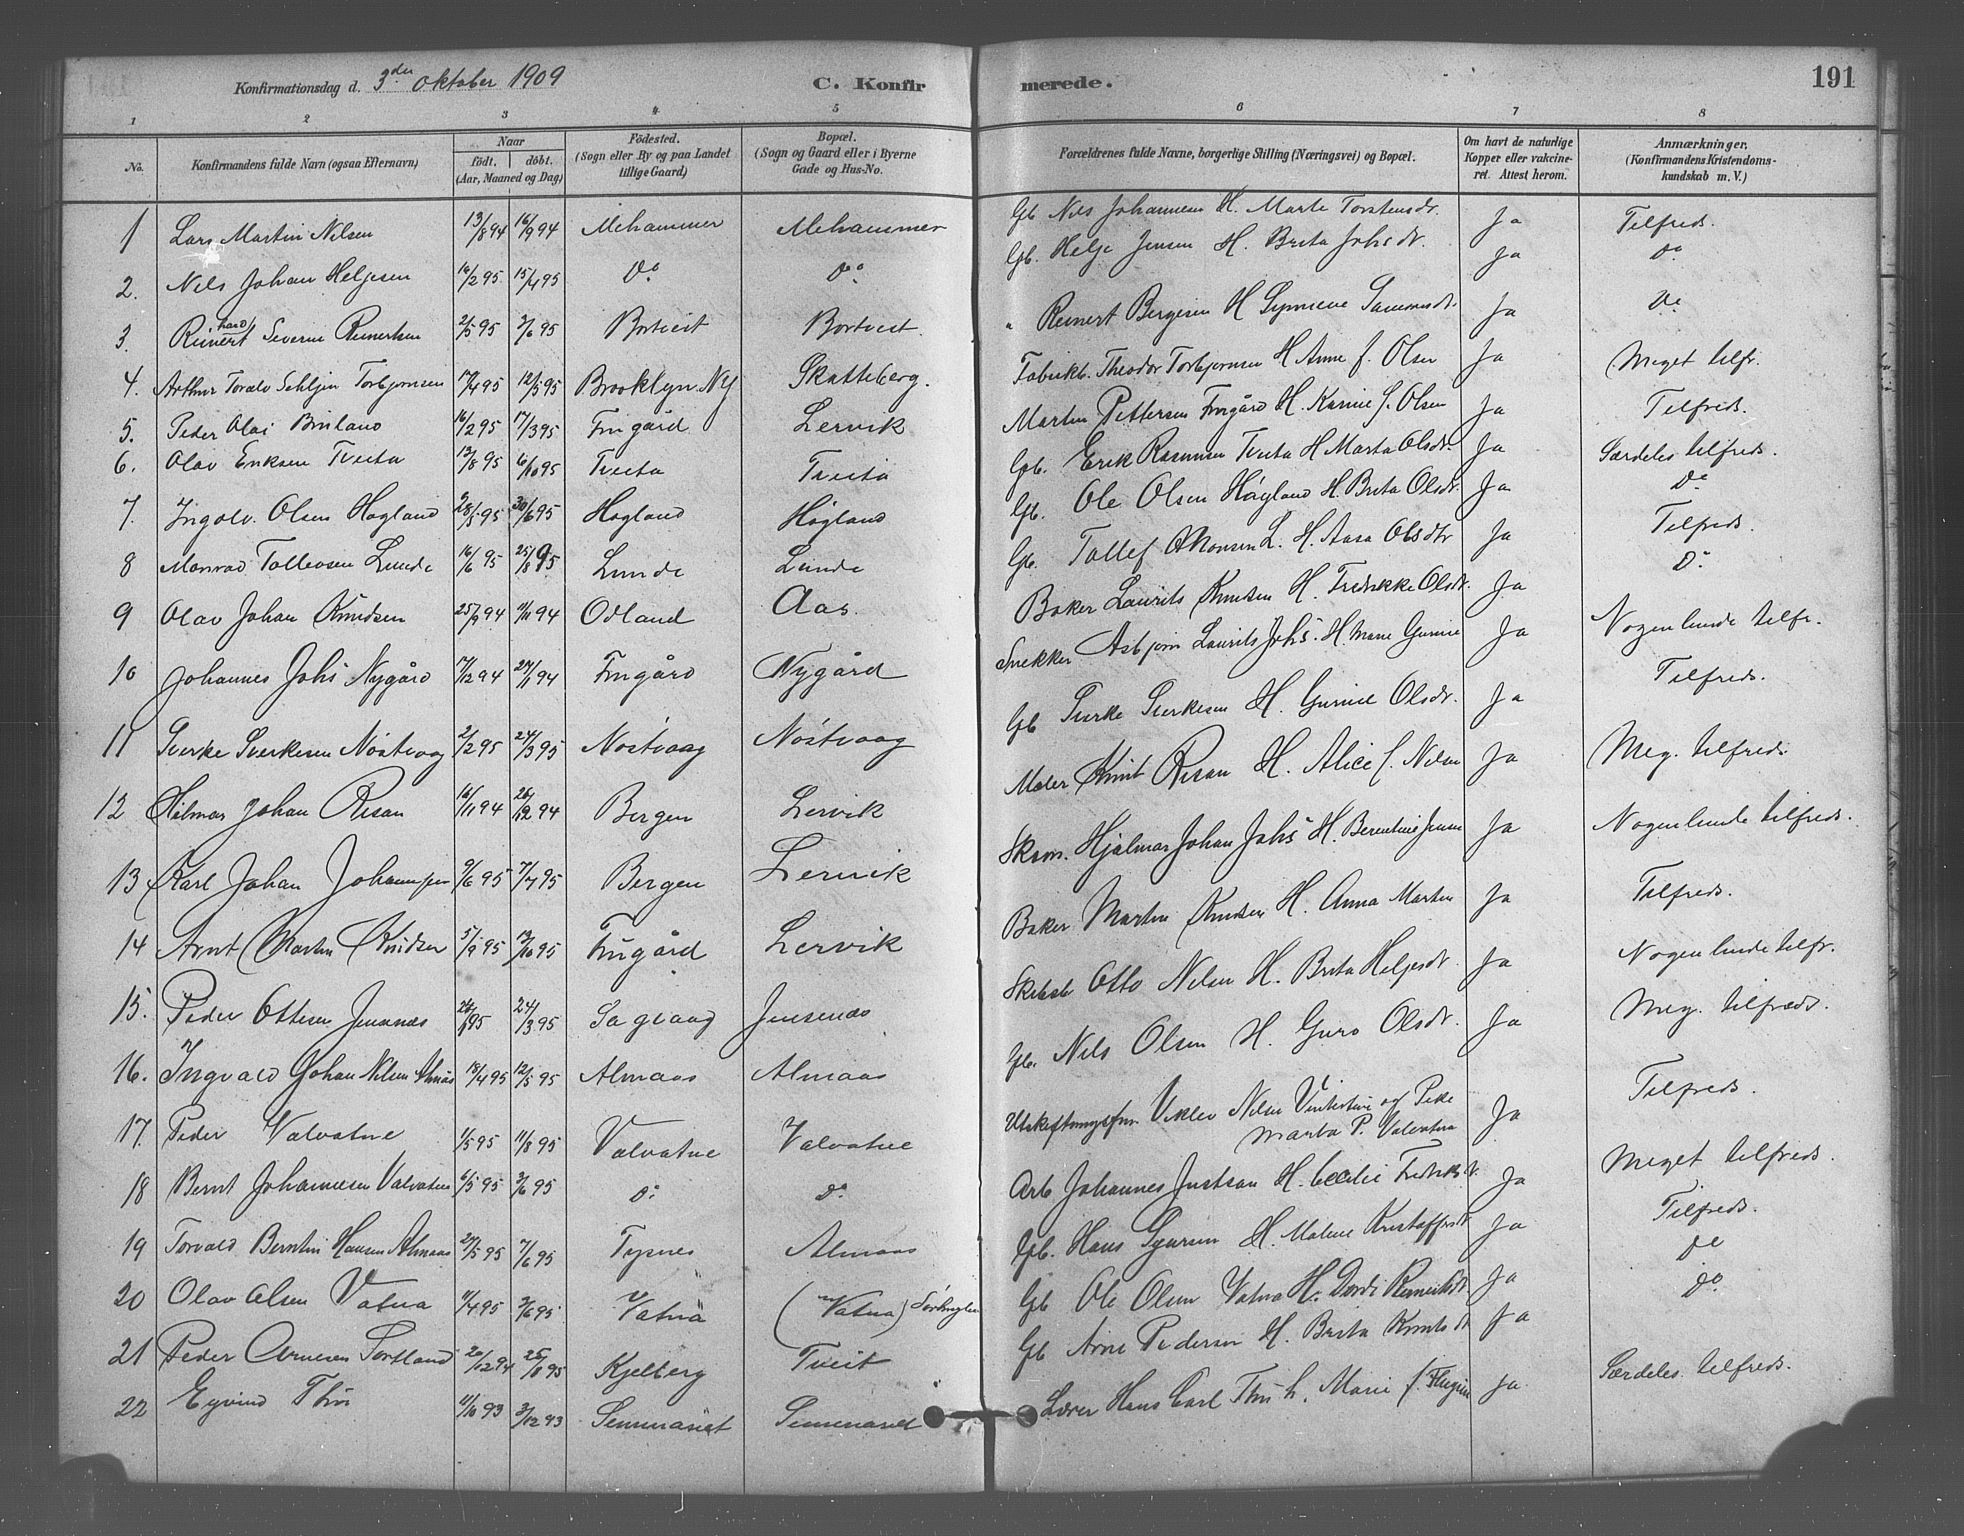 Konfirmationsdag d. 3die oktober 1909 C. Konfirmerede. 191
1 2 3 4 5 6 7 8
No. Konfirmandens fulde Navn (ogsaa Efternavn) Naar födt. döbt. (Aar, Maaned og Dag) Födested. (Sogn eller By og paa Landet tillige Gaard) Bopæl. (Sogn og Gaard eller i Byerne Gade og Hus-No. Forældrenes fulde Navne, borgerlige Stilling (Næringsvei) og Bopæl. Om havt de naturlige Kopper eller vakcineret. Attest herom. Anmærkninger. (Konfirmandens Kristendomskundskab m. V.)
1 Lars Martin Nilsen 13/8 94 16/9 94 Mehammer Mehammer Gb Nils Johannesen H. Marte Torstensdr. Ja Tilfreds.
2. Nils Johan Helgesen 16/2 95 15/4 95 Do Do Gb. Helge Jensen H. Brita Johsdr. Ja Do
3. Reinert hard Severin Reinertsen 2/5 95 3/6 95 Bortveit Bortveit " Reinert Bergesen H Synneve Ja Do
4. Arthur Torbjornsen 17/4 95 12/5 95 Brooklyn. NY Skatteberg. Fabrikb. Theodor Torbjornsen H Anne f. Olsen Ja Meget tilfr.
5. Peder Olai 16/2 95 17/3 95 Frugård Lervik Martin Pettersen Frugård H. f. Olsen Ja Tilfreds.
6. Olav Eriksen Tveita 13/8 95 6/10 95 Tveita Tveita Gb. Erik Rasmusen Tveita H Marta Olsdr. Ja Særdeles tilfreds.
7. Ingolv. Olsen Hogland 28/5 95 30/6 95 Hogland Högland Gb. Ole Olsen Högland H. Brita Olsdr. Ja Do
8 Monrad Tollevsen Lunde 16/6 95 25/8 95 Lunde Lunde Gb. Tollef L. H. Aasa Olsdtr Ja Tilfreds.
9 Olav Johan Knudsen 25/9 94 11/11 94 Odland Aas. Baker Laurits Knudsen H. Fredrikke Olsdr. Ja Do
10 Johannes Johs Nygård 7/12 94 Frugård Nygård Snekker Asbjørn Laurits Johs. H. Gurine Ja Nogenlunde tilfr.
11 Sverke Sverkesen Nöstvaag 2/2 95 24/3 95 Nöstvaag Nöstvaag Gb Sverke Sverkesen H. Gunild Olsdr. Ja Tilfreds.
12 Hilmar Johan Risan 16/11 94 26/12 94 Bergen Lervik Maler Knut Risan H. Alice f. Nilsen Ja Meg. tilfreds.
13 Karl Johan Johannessen 9/6 95 7/7 95 Bergen Lervik Skom. Hjalmar Johan Johs H. Berentine Jensen Ja Nogenlunde tilfreds.
14 Arnt Martin Knudsen 5/9 95 13/10 95 Frugård Lervik Baker Martin Knudsen H. Anna Martin Ja Tilfreds.
15. Peder Ottesen Jensenæs 95 24/3 95 Sagvaag Jensenæs Otto Nilsen H. Brita Helgesdr. Ja Nogenlunde tilfr.
16. Ingvald Johan Nilsen Almås 18/4 95 12/5 95 Almaas Almaas Gb. Nils Olsen H. Guro Olsdr. Ja Meg. tilfreds.
17. Peder Valvatne 1/5 95 11/8 95 Valvatne Valvatne Nilsen og Pike Ja Tilfreds.
Marta P. Valvatne
18 Bernt Johannesen Valvatne 6/5 95 3/6 95 Do Do Arb Johannes Justsan H. Cecilie Fredriksdr. Ja Meget tilfreds.
19 Torvald Berntin Hansen Almaas 27/5 95 7/6 95 Tysnes Almaas Gb. Hans Sjursen H. Malene Kristoffersdr Ja Tilfreds.
20 Olav Olsen Vatna 11/4 95 3/6 95 Vatna (Vatna) Gb Ole Olsen Vatna H. Ja Do
21 Peder Arnesen Sortland 20/12 94 Kjelberg Tveit Gb Arne Pedersen H. Brita Knutsdr Ja Do
22 Eyvind Thu 11/10 93 3/12 93 Seminariet Seminariet Lærer Hans Carl Thu h. Marie f. Ja Særdeles tilfreds.